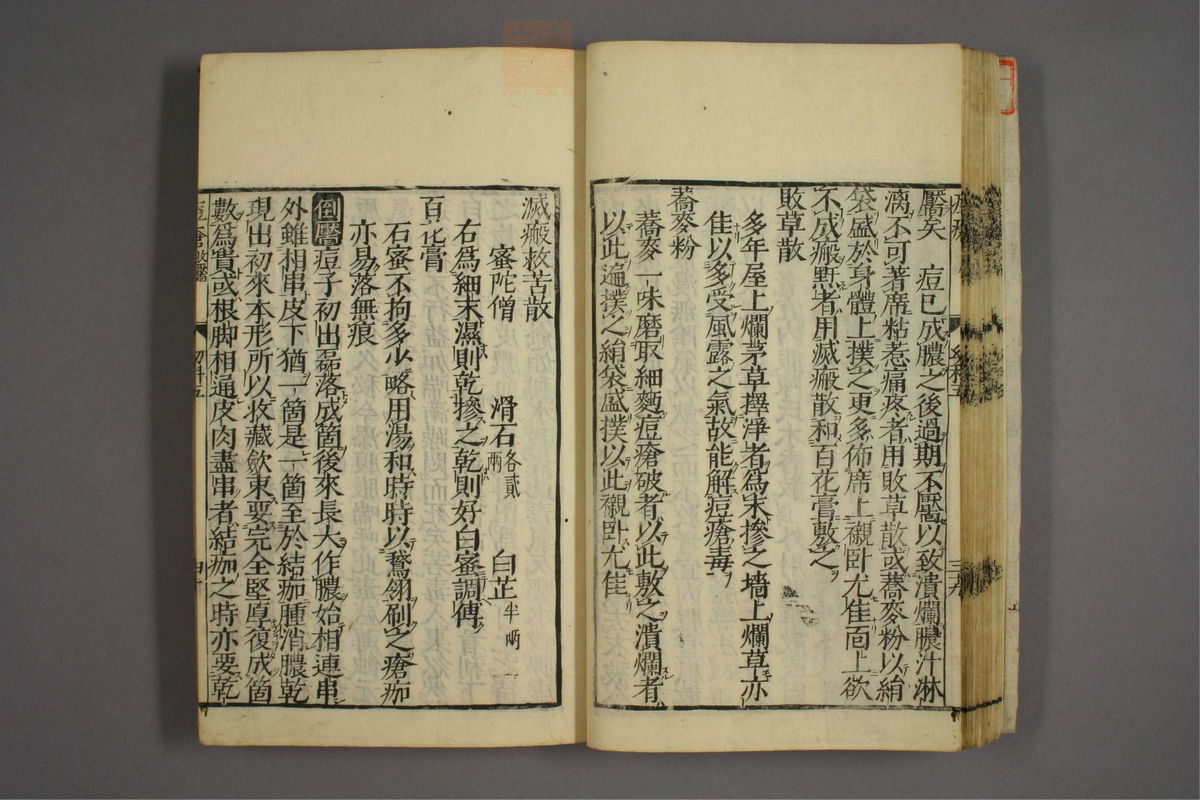 靨矣　痘已成膿之後過期不靨以致潰爛膿汁淋
漓不可著席粘惹痛疼者用敗草散或蕎麥粉以絹
袋盛於身體上撲之更多佈席上襯卧尤佳面上欲
不成瘢㸃者用滅瘢散和百花膏敷之
敗草散
多年屋上爛茅草擇淨者為末摻之墻上爛草亦
佳以多受風露之氣故能解痘瘡毒
蕎麥粉
蕎麥一味磨取細麪痘瘡破者以此敷之潰爛者
以此遍撲之絹袋盛撲以此襯卧尤佳
滅瘢救苦散
蜜陀僧　滑石各貳兩　白芷半兩
右為細末濕則乾摻之乾則好白蜜調傅
百花膏
石蜜不拘多少略用湯和時時以鵞翎刷之瘡痂
亦易落無痕
倒靨痘子初出磊落成箇後來長大作膿始相連串
外雖相串皮下猶一箇是一箇至於結痂腫消膿乾
現出初來本形所以收藏斂束要完全堅厚復成箇
數為貴或根脚相通皮肉盡串者結痂之時亦要乾